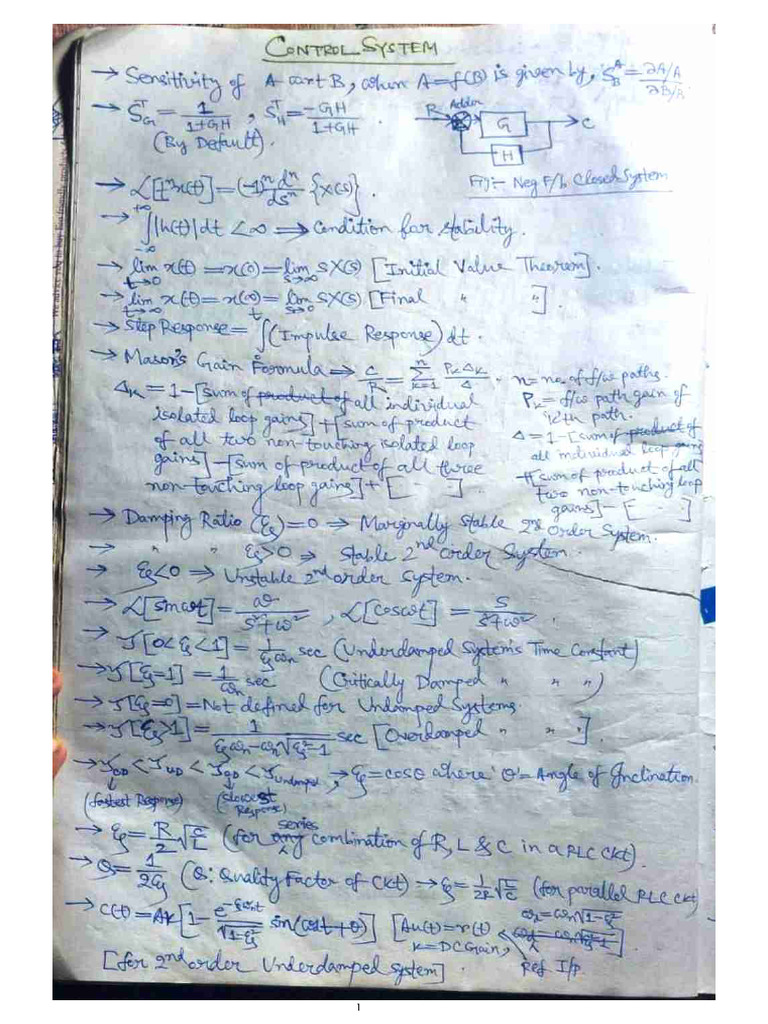 CONTROL SYSTEM
→ Sensitivity of A wrt B, when A=f(B) is given by, S_B^A = ∂A/A / ∂B/B
→ S_G^T = 1/(1+GH), S_H^T = -GH/(1+GH).
(By Default).
R Adder G C
H
Fig:- Neg F/b Closed System
→ L[t^n x(t)] = (-1)^n d^n/ds^n {X(s)}.
→ ∫_{-∞}^{+∞} |h(t)| dt < ∞ ⟹ Condition for stability.
→ lim_{t→0} x(t) = x(0) = lim_{s→∞} sX(s) [Initial Value Theorem].
→ lim_{t→∞} x(t) = x(∞) = lim_{s→0} sX(s) [Final " "].
→ Step Response = ∫_0^t (Impulse Response) dt.
→ Mason's Gain Formula ⟹ C/R = Σ_{k=1}^{n} P_k Δ_k / Δ.
n = no. of f/w paths.
P_k = f/w path gain of
k'th path.
Δ = 1-[sum of product of
all individual loop gains]
+[sum of product of all
two non-touching loop
gains] - [ . . . ]
Δ_k = 1-[sum of product of all individual
isolated loop gains] + [sum of product
of all two non-touching isolated loop
gains] - [sum of product of all three
non-touching loop gains] + [ . . . ].
→ Damping Ratio (ξ) = 0 ⟹ Marginally Stable 2nd Order System.
→ " " ξ>0 ⟹ Stable 2nd order System.
→ ξ<0 ⟹ Unstable 2nd order System.
→ L[sinωt] = ω/(s²+ω²), L[cosωt] = s/(s²+ω²).
→ τ[0<ξ<1] = 1/(ξωn) sec (Underdamped System's Time Constant)
→ τ[ξ=1] = 1/ωn sec (Critically Damped " " ")
→ τ[ξ=0] = Not defined for Undamped Systems.
→ τ[ξ>1] = 1/(ξωn-ωn√(ξ²-1)) sec [Overdamped " " ].
→ τ_CD < τ_UD < τ_OD < τ_Undamped, → ξ = cosθ where 'θ' = Angle of Inclination.
(fastest Response) (slowest Response)
→ ξ = R/2 √(C/L) (for any series combination of R, L & C in a RLC Ckt).
→ Q = 1/2ξ (Q: Quality Factor of Ckt) → ξ = 1/2R √(L/C) (for parallel RLC ckt)
→ c(t) = Ak[1 - e^{-ξωnt}/√(1-ξ²) sin(ωdt+θ)] [Au(t)=r(t)
ωd=ωn√(1-ξ²)
ωd=ωn√(ξ²-1)].
k=DC Gain, Ref I/p.
[for 2nd order Underdamped system].
1